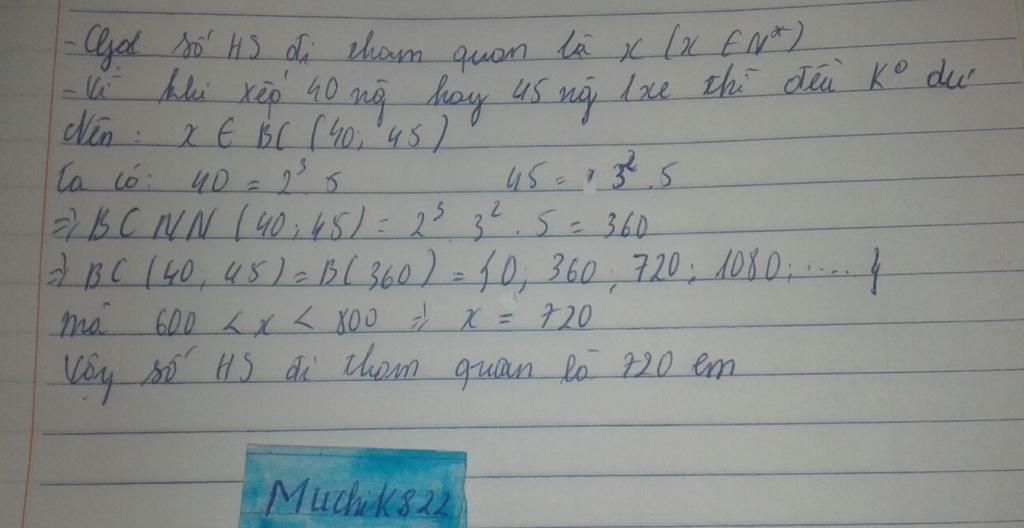 - Gọi số HS đi tham quan là x (x ∈ N*)
- Vì khi xếp 40 ng hay 45 ng 1 xe thì đều K° dư
Nên : x ∈ BC (40; 45)
Ta có: 40 = 2³. 5 45 = 3². 5
=> BCNN (40; 45) = 2³. 3². 5 = 360
=> BC (40; 45) = B(360) = {0; 360; 720; 1080; .... }
mà 600 < x < 800 => x = 720
Vậy số HS đi tham quan là 720 em
MuchiK822